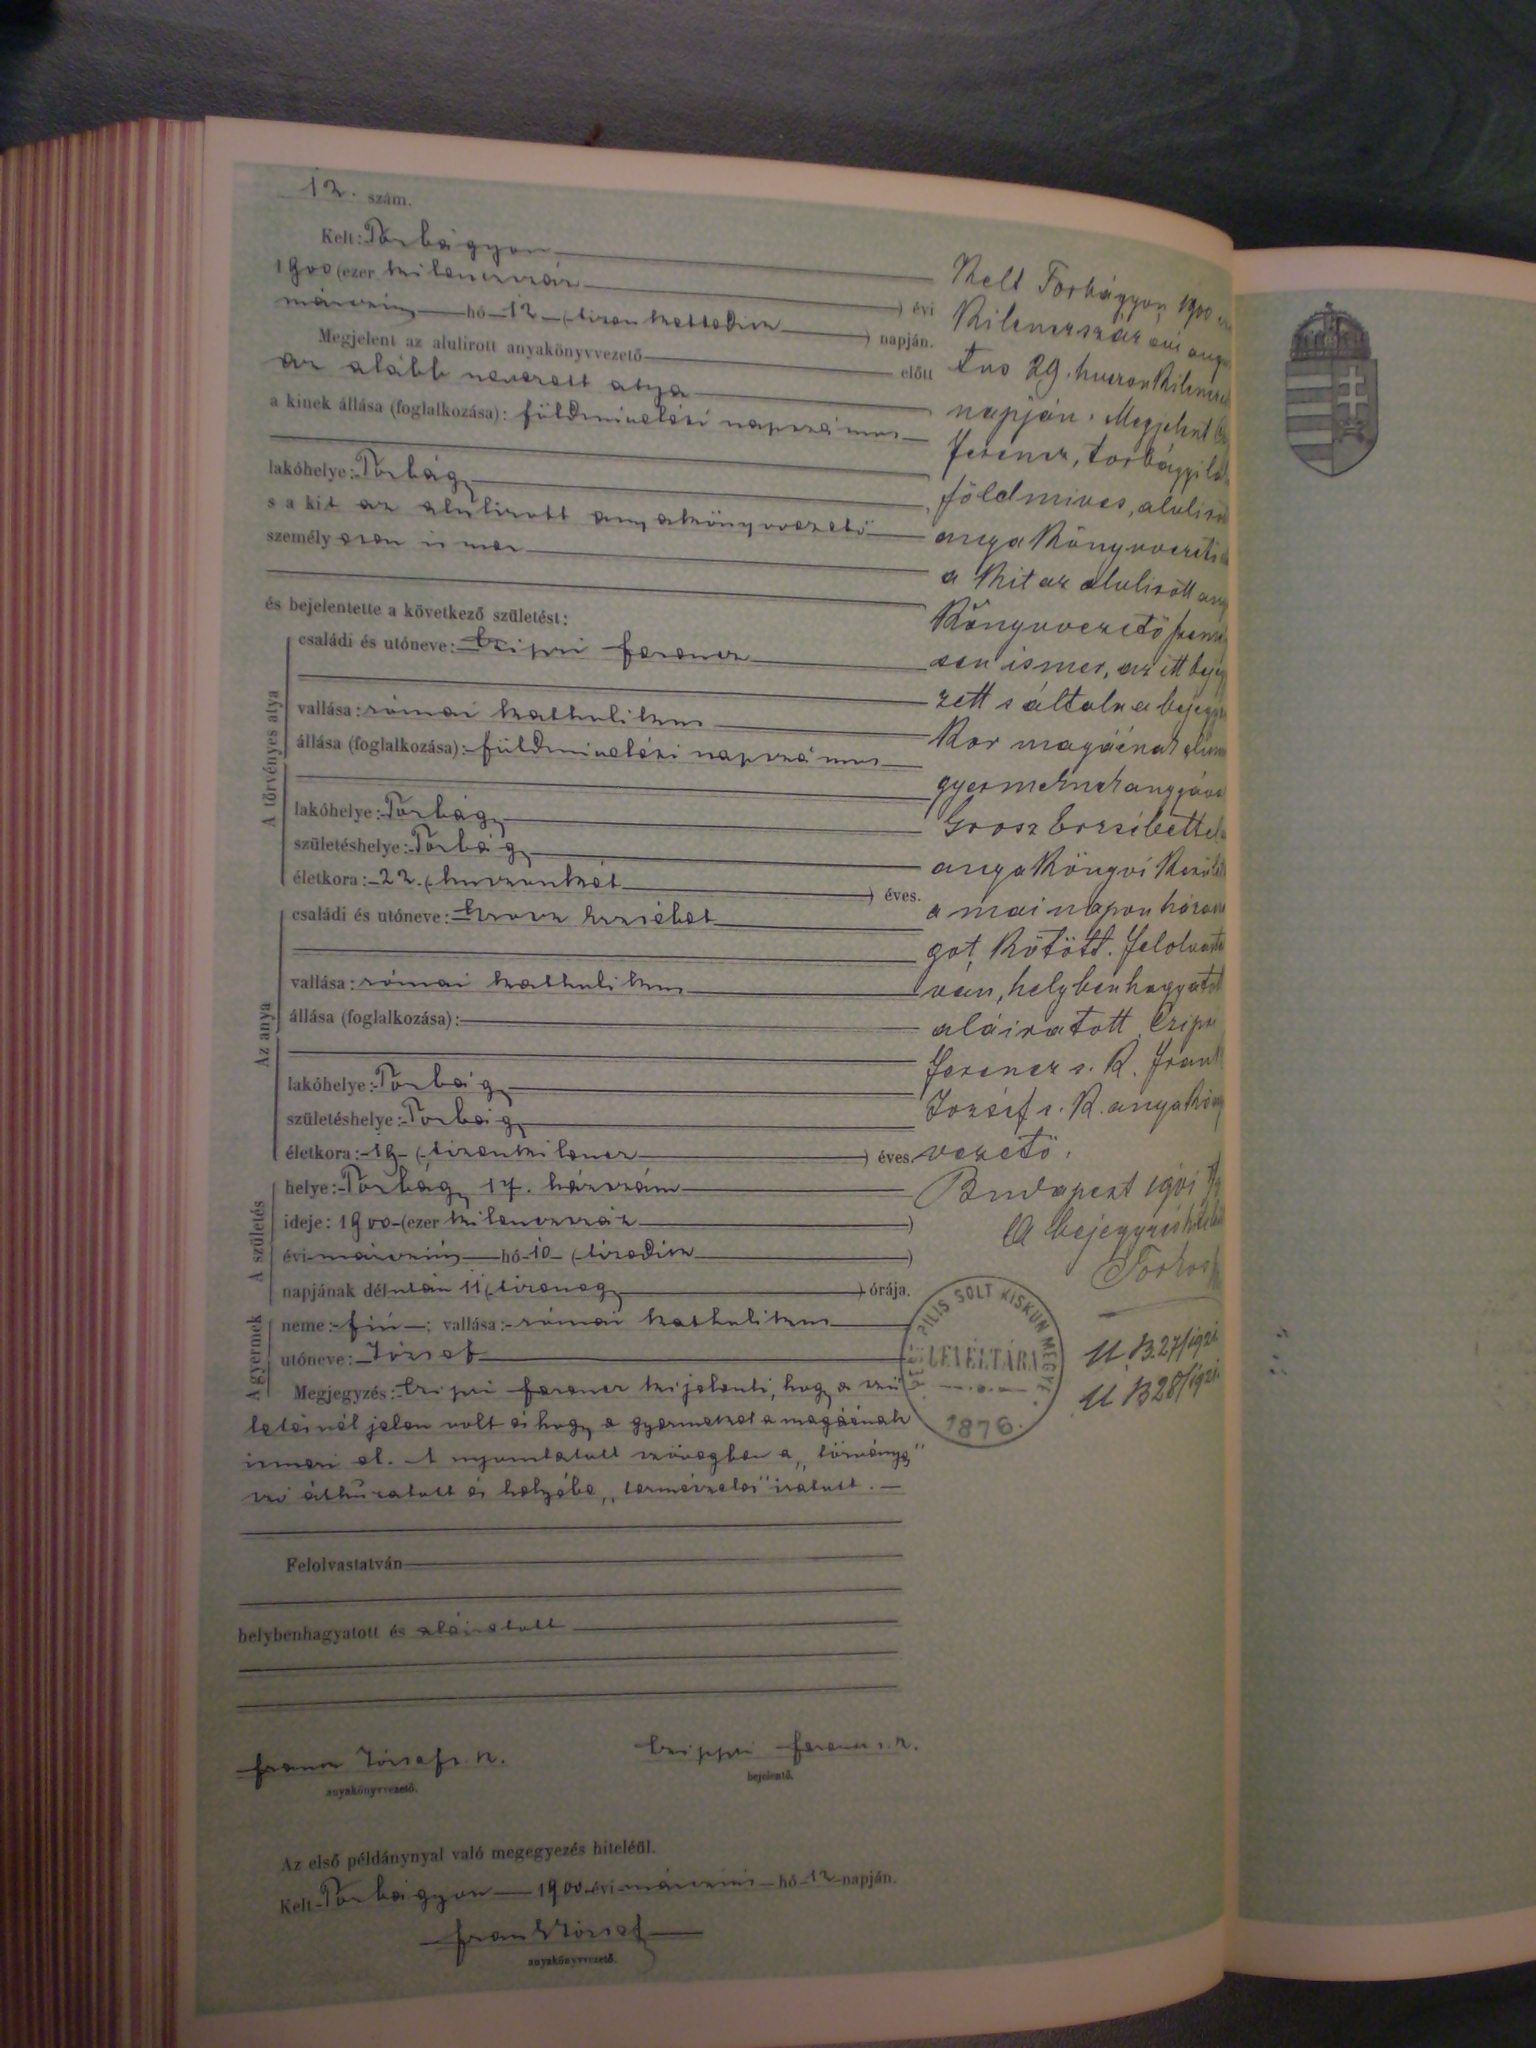 12. szám.
Kelt: Torbágyon
1900 (ezer kilenczszáz ) évi
márczius hó 12 (tizenkettedik ) napján.
Megjelent az alulirott anyakönyvvezető előtt
az alább nevezett atya
a kinek állása (foglalkozása): földmivelési napszámos
lakóhelye: Torbágy
s a kit az alulirott anyakönyvvezető
személyesen ismer
és bejelentette a következő születést:
A törvényes atya
családi és utóneve: Czipri Ferencz
vallása: római katholikus
állása (foglalkozása): földmivelési napszámos
lakóhelye: Torbágy
születéshelye: Torbágy
életkora: 22. (huszonkét ) éves.
Az anya
családi és utóneve: Grosz Erzsébet
vallása: római katholikus
állása (foglalkozása):
lakóhelye: Torbágy
születéshelye: Torbágy
életkora: 19 (tizenkilencz ) éves.
A születés
helye: Torbágy 17. házszám
ideje: 1900 (ezer kilenczszáz )
évi márczius hó 10 (tizedik )
napjának délután 11 (tizenegy ) órája.
A gyermek
neme: fiú; vallása: római katholikus
utóneve: József
Megjegyzés: Czipri Ferencz kijelenti, hogy a szü
letésnél jelen volt és hogy a gyermeket a magáénak
ismeri el. A nyomtatott szövegben a „törvényes"
szó áthúzatott és helyébe „természetes" iratott.
Felolvastatván
helybenhagyatott és aláiratott
Frank József s. k.
anyakönyvvezető.
Czippri Ferencz s. k.
bejelentő.
Az első példánynyal való megegyezés hiteléül.
Kelt Torbágyon 1900 évi márczius hó 12 napján.
Frank József
anyakönyvvezető.
Kelt Torbágyon 1900
Kilenczszáz évi aug
tus 29. huszonkilencze
napján. Megjelent
Ferencz, torbágyi la
földmives, alulirott
anyakönyvvezető
a kit az alulirott any
könyvvezető szemé
sen ismer, az itt bejegy
zett s általa a bejegyzés
kor magáénak elismert
gyermeknek anyjával
Grosz Erzsébettel
anyakönyvi kerület
a mai napon házass
got kötött. Felolvasta
ván, helybenhagyatott
aláiratott. Czipri
Ferencz s. k. Frank
József s. k. anyaköny
vezető.
Budapest 1901
A bejegyzés hiteléül
PILIS SOLT KISKUN MEGYE
LEVÉLTÁRA
1876.
U B 27/1921
U B 28/1921